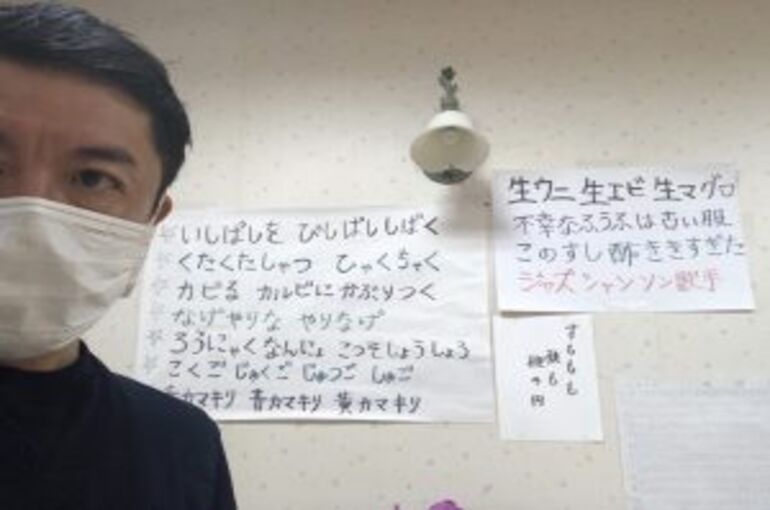 いしばしを びしばししばく
くたくたしゃつ ひゃくちゃく
カビる カルビに かぶりつく
なげやりな やりなげ
ろうにゃくなんにょ こつそしょうしょう
こくご じゅくご じゅつご しゅご
カマキリ 青カマキリ 黄カマキリ
生ウニ 生エビ 生マグロ
不幸なふうふは古い服
このすし酢ききすぎた
ジャズシャンソン歌手
すももも
桃も